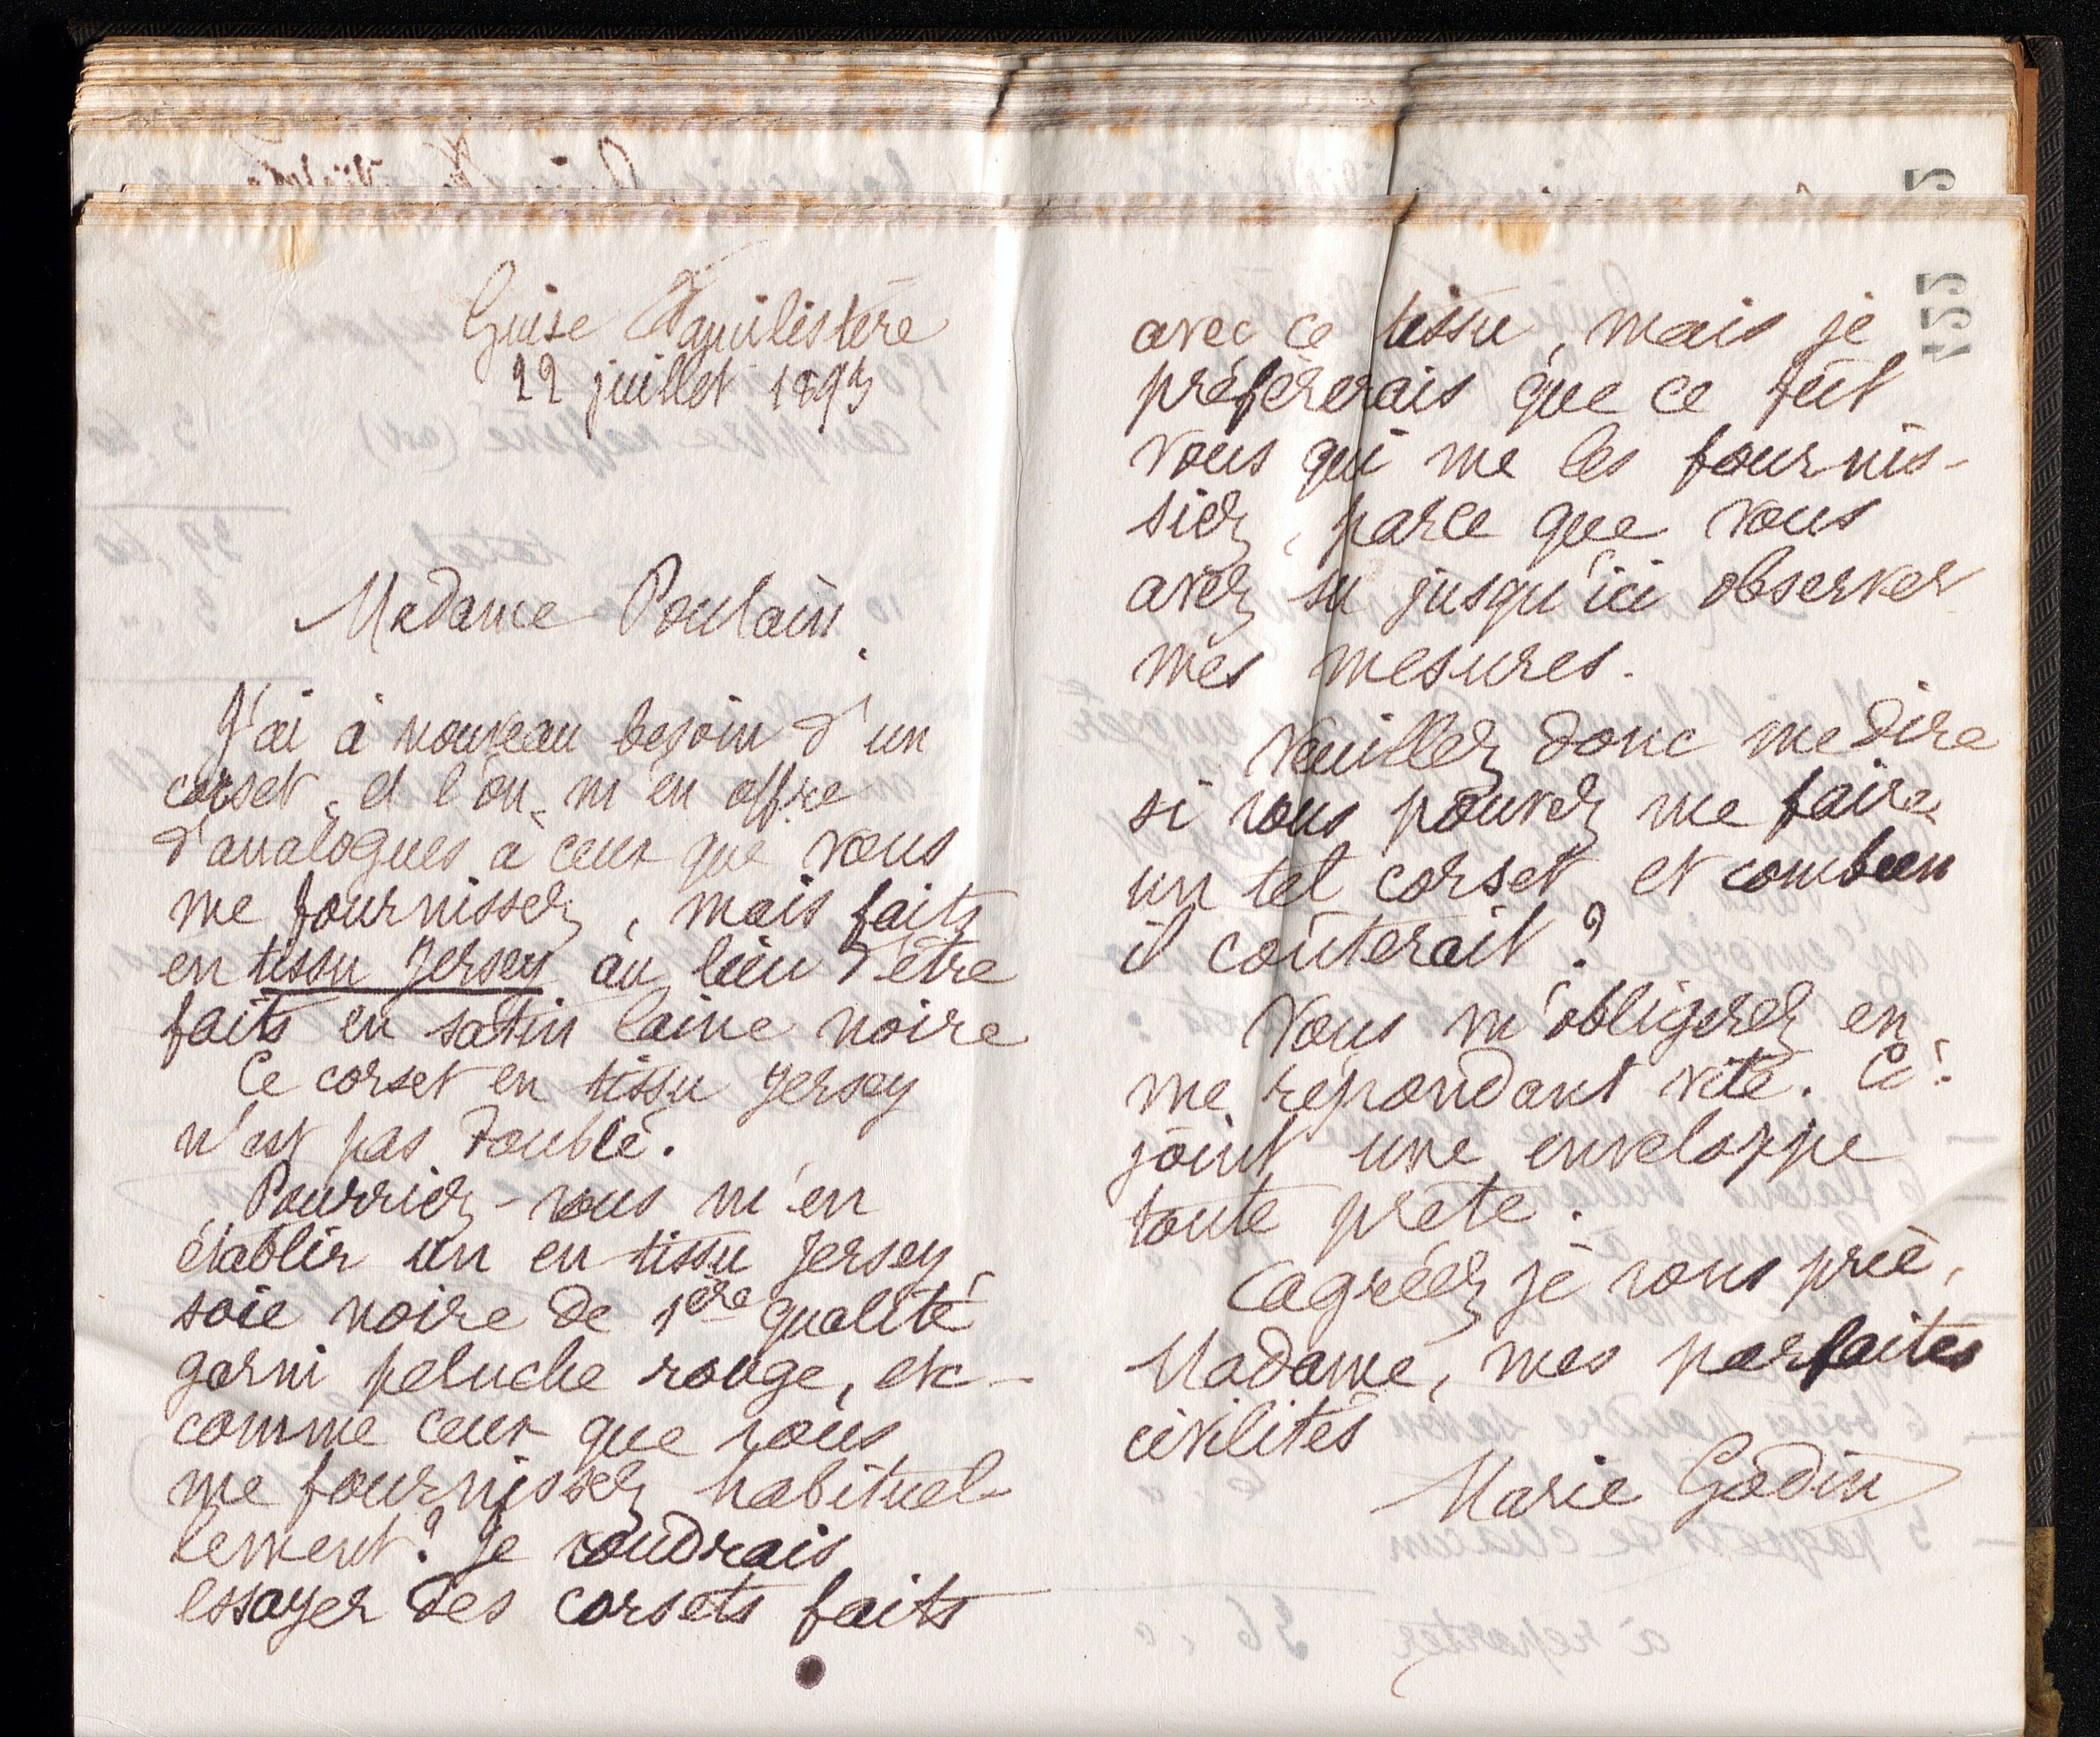 Guise Familistère
22 juillet 1893
Madame Poulain,
J'ai à nouveau besoin d'un
corset et l'on m'en offre
d'analogues à ceux que vous
me fournissez, mais faits
en tissu Jersey au lieu d'être
faits en satin laine noire
Ce corset en tissu Jersey
n'est pas doublé.
Pourriez-vous m'en
établir un en tissu Jersey
soie noire de 1ère qualité
garni peluche rouge, etc
comme ceux que vous
me fournissez habituel-
lement? Je voudrais
essayer des corsets faits
avec ce tissu, mais je
préfèrerais que ce fût
vous qui me les fournis-
siez, parce que vous
avez su jusqu'ici observer
mes mesures.
Veuillez donc me dire
si vous pouvez me faire
un tel corset et combien
il coûterait?
Vous m'obligerez en
me répondant vite. Ci-
joint une enveloppe
toute prête.
Agréez je vous prie,
Madame, mes parfaites
civilités
Marie Godin